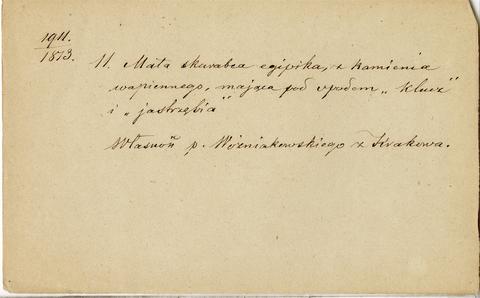 1911.
1873.
11. Mała skarabea egipska, z kamienia
wapiennego, mająca pod spodem „klucz"
i „jastrzębia"
Własność p. Woźniakowskiego z Krakowa.